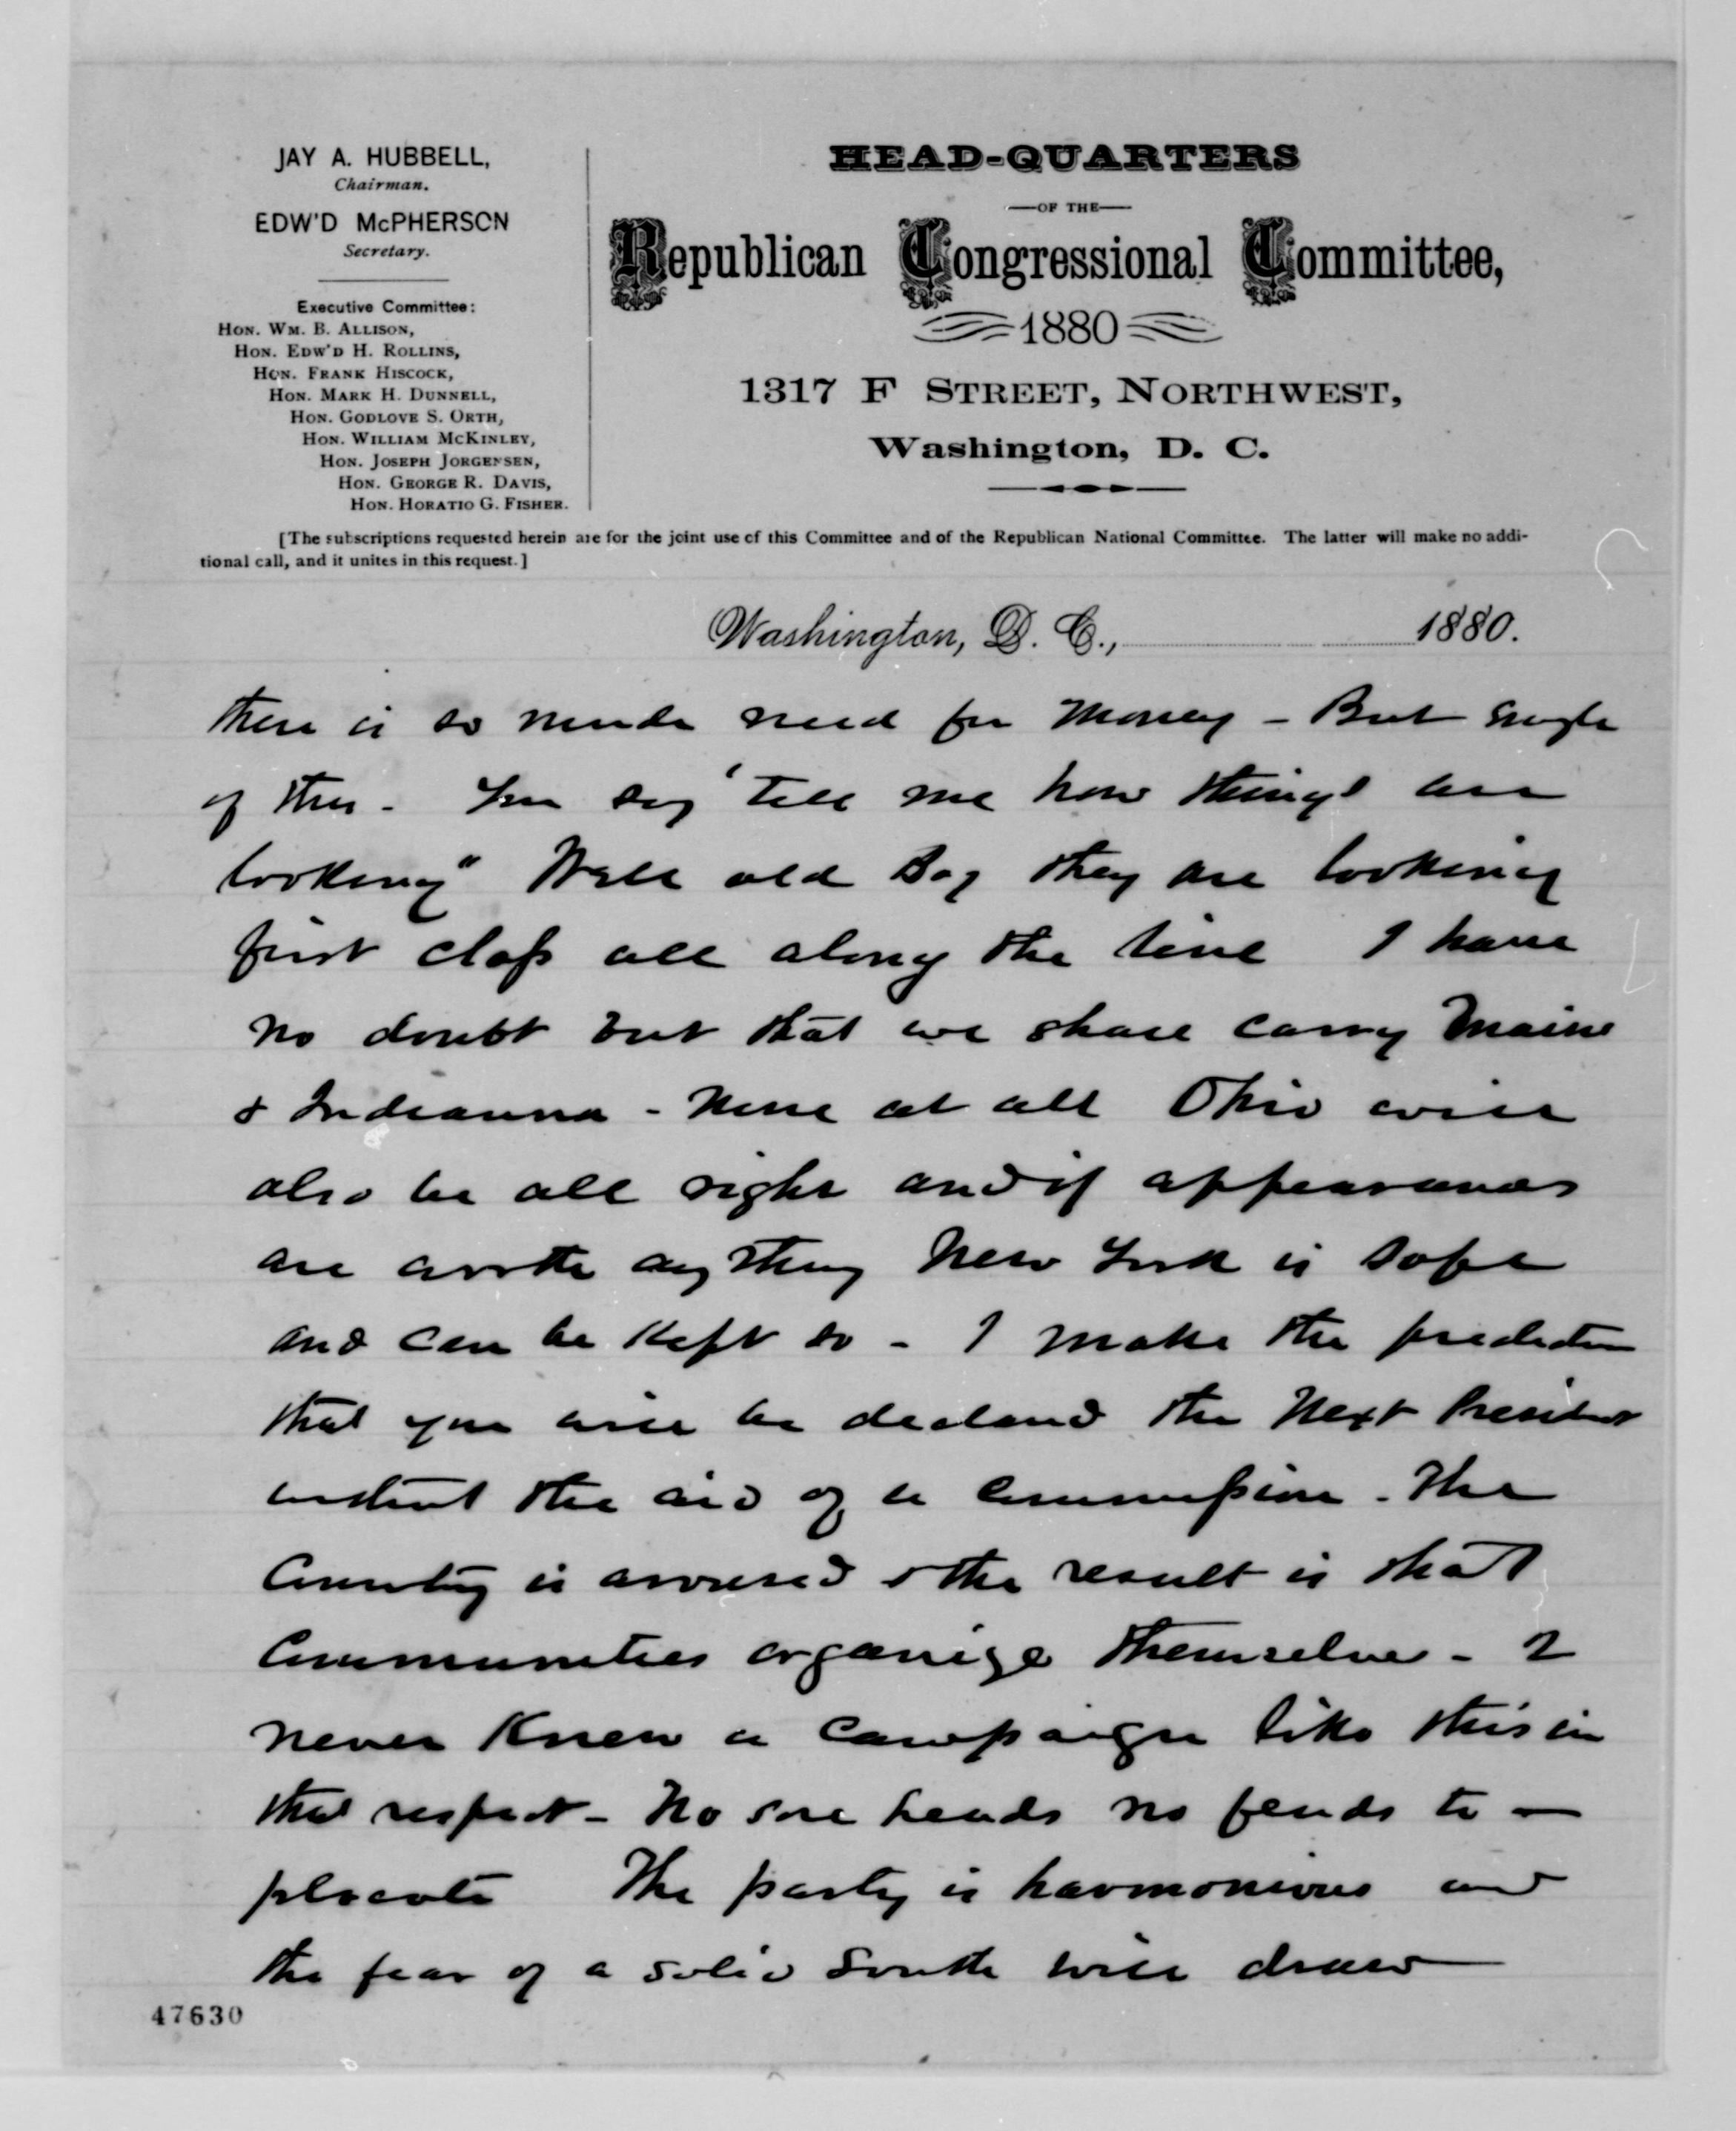 JAY A. HUBBELL,
Chairman.
EDW'D McPHERSON
Secretary.
Executive Committee:
HON. WM. B. ALLISON,
HON. EDW'D H. ROLLINS,
HON. FRANK HISCOCK,
HON. MARK H. DUNNELL,
HON. GODLOVE S. ORTH,
HON. WILLIAM McKINLEY,
HON. JOSEPH JORGENSEN,
HON. GEORGE R. DAVIS,
HON. HORATIO G. FISHER.
HEAD-QUARTERS
OF THE
Republican Congressional Committee,
1880
1317 F STREET, NORTHWEST,
Washington, D. C.
[The subscriptions requested herein are for the joint use of this Committee and of the Republican National Committee. The latter will make no addi-
tional call, and it unites in this request.]
Washington, D. C., 1880.
there is so much need for money - But enough
of this - You say "tell me how things are
looking" Well old Boy they are looking
first class all along the line I have
no doubt but that we shall carry Maine
& Indianna - None at all Ohio will
also be all right and if appearances
are worth anything New York is safe
and can be kept so - I make the prediction
that you will be declared the Next President
without the aid of a Commission. The
Country is aroused & the result is that
Communities organize themselves - I
never knew a campaign like this in
that respect - No sore heads no feuds to
placate The party is harmonious and
the fear of a solid South will draw
47630